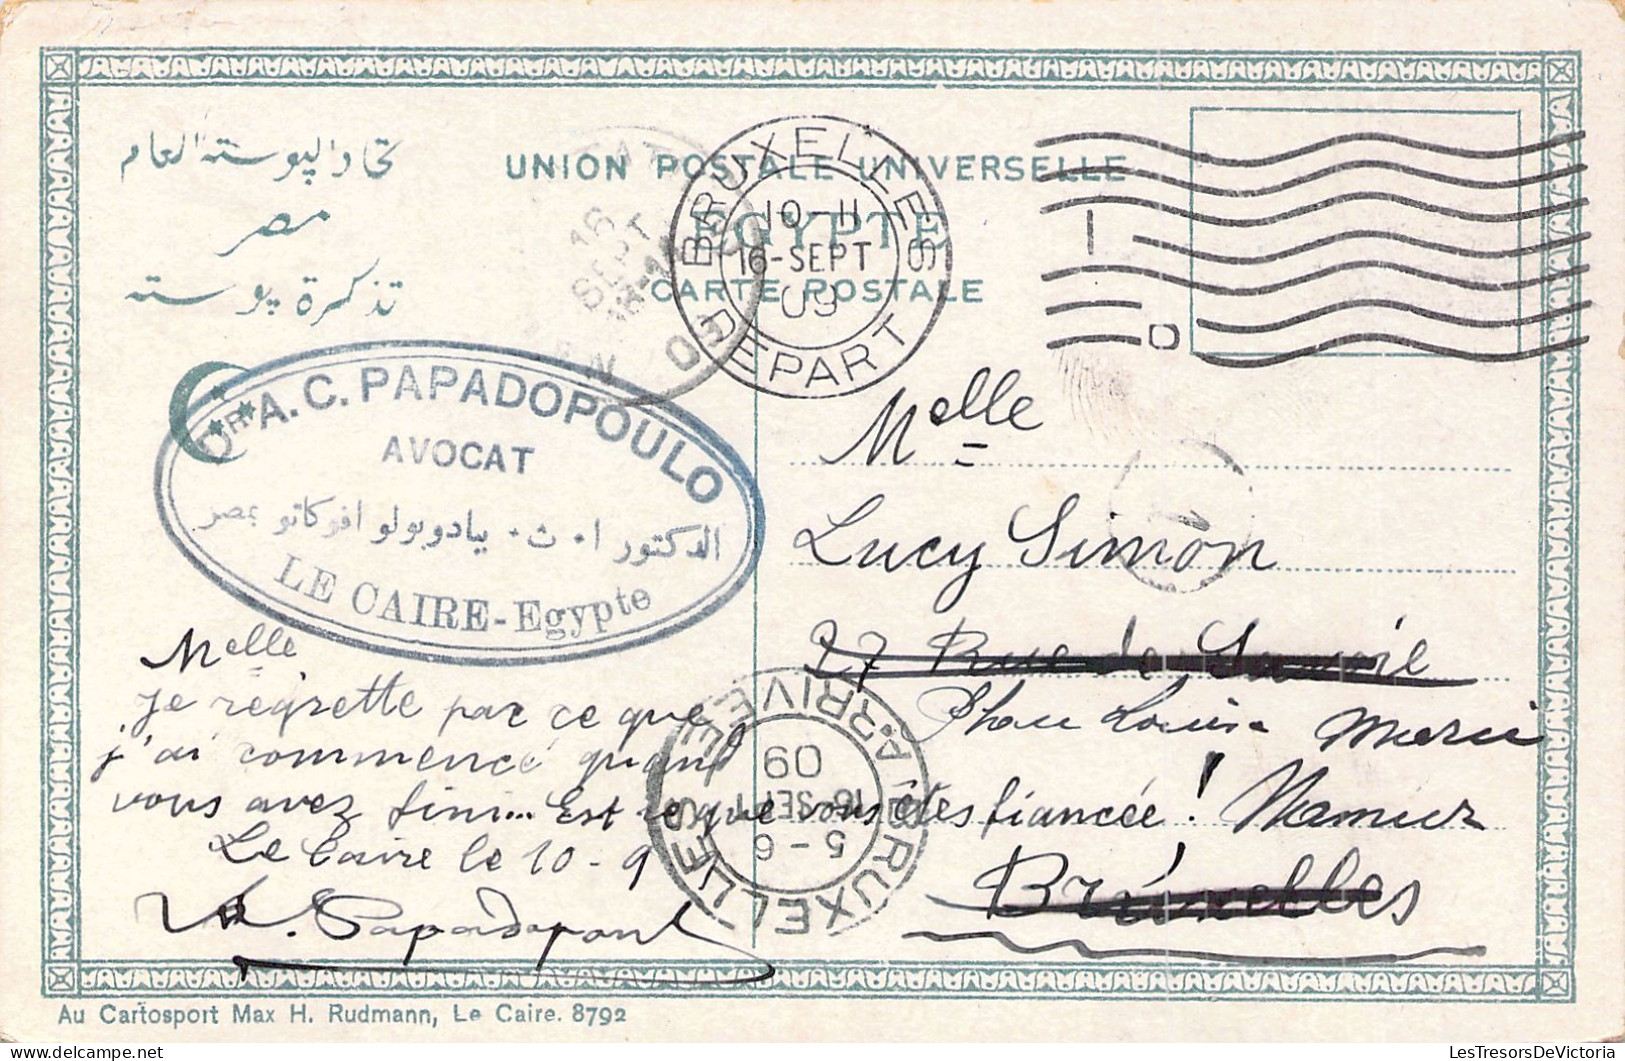 تحاد البوسته العام
مصر
تذكرة بوسته
UNION POSTALE UNIVERSELLE
EGYPTE
CARTE POSTALE
BRUXELLES
10-11
16-SEPT
09
DEPART
16
SEPT
09
Dr A. C. PAPADOPOULO
AVOCAT
الدكتور ا. ث. بيادوبولو افوكاتو بمصر
LE CAIRE-Egypte
Melle
Lucy Simon
27 Rue de
Louise Marie
Namur
Bruxelles
Melle
je regrette par ce que
j'ai commencé quand
vous avez fini... Est ce que vous êtes fiancée!
Le Caire le 10-9
Papadopoul
BRUXELLES ARRIVEE
5-6
16 SEPT
09
1
Au Cartosport Max H. Rudmann, Le Caire. 8792
LesTresorsDeVictoria